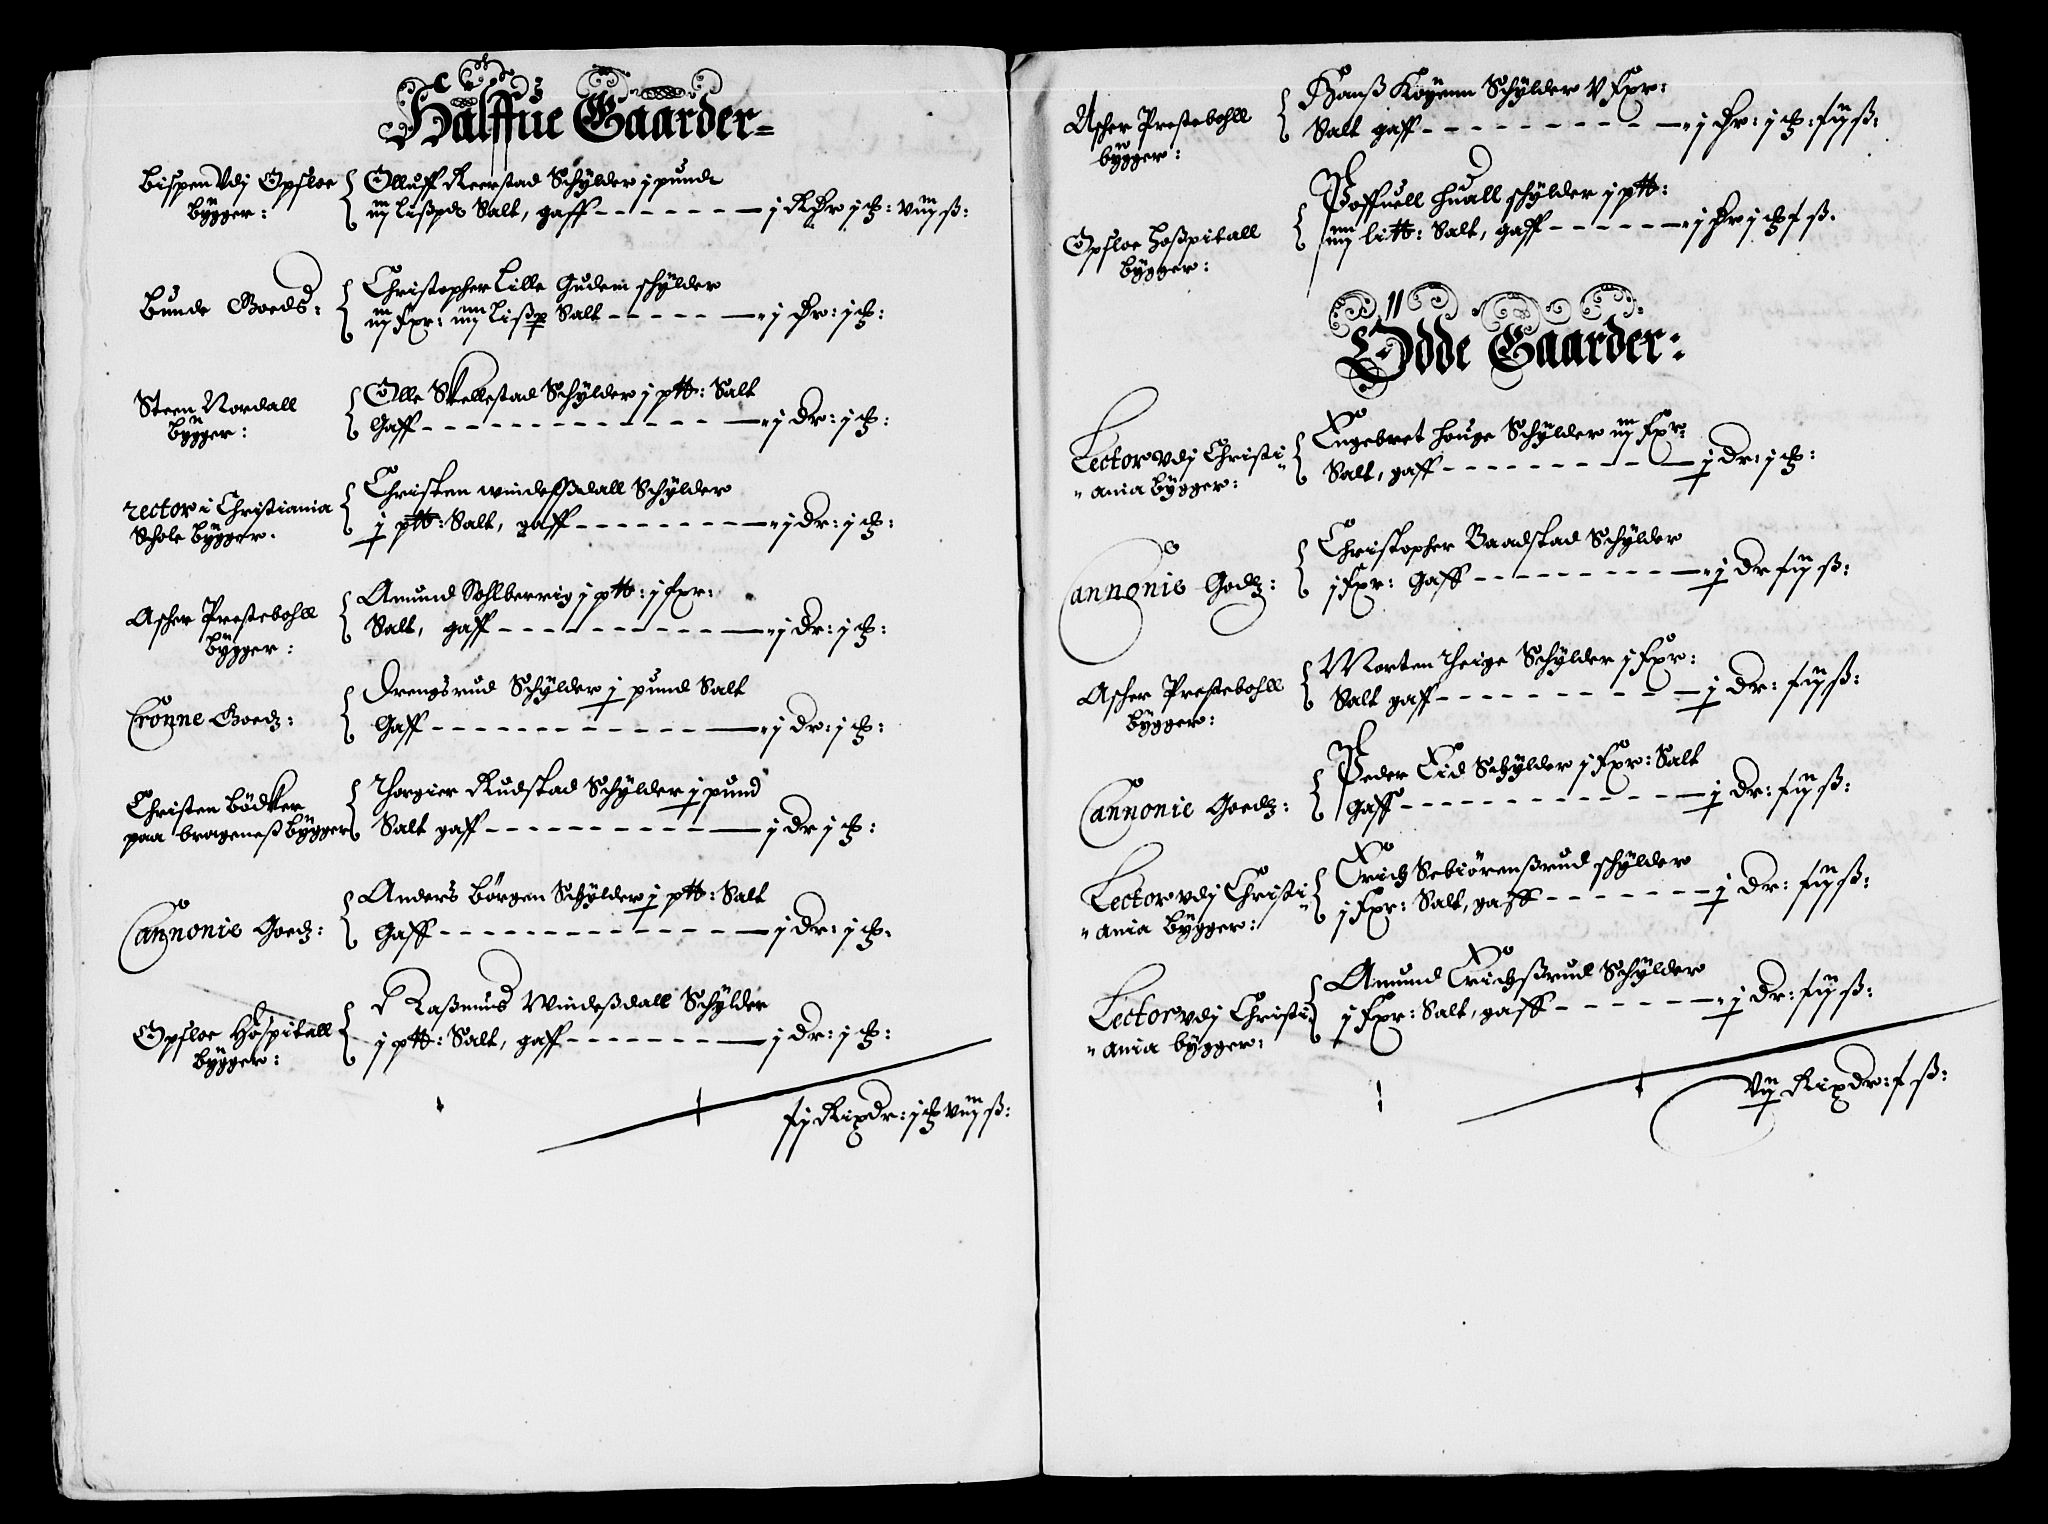 Halffue Gaarder=
Bispen Vdj Opsloe
bygger:
Olluff Keerstad Schylder j pund
iij lißpd Salt, gaff - - - - - - j RDr j ꝗ: viij ß:
Bunde Goeds:
Christopher Lille Gudem schylder
iij Fxr: iiij Lißp Salt - - - - - j Dr: j ꝗ:
Steen Nordall
bygger:
Olle Skellestad Schylder j ptt: Salt
Gaff - - - - - - - - - - j dr: j ꝗ:
rector i Christiania
Schole bygger.
Christen windeßdall Schylder
j ptt: Salt, gaff - - - - - - - j dr: j ꝗ:
Asker Prestebohll
bygger:
Amund Sohlberrig j ptt: j fxr:
Salt, gaff - - - - - - - - j dr: j ꝗ:
Cronne Goedz:
Drengsrud Schylder j pund Salt
Gaff - - - - - - - - - - j dr: j ꝗ:
Christen bödker
paa brageneß bygger
Thorgier Rudstad Schylder j pund
Salt gaff - - - - - - - - j dr j ꝗ:
Cannonie Goedz:
Anders börgen Schylder j ptt: Salt
Gaff - - - - - - - - - - j dr: j ꝗ:
Opsloe Hospitall
bygger:
Raßmus Windeßdall Schylder
j ptt: Salt, gaff - - - - - - j dr: j ꝗ:
xj Rixdr: j ꝗ viij ß:
Asker Prestebohll
bygger:
Hanß Köyenn Schylder V Fxr:
Salt gaff - - - - - - - - j Dr: j ꝗ: xij ß:
Opsloe Hoßpitall
bygger:
Poffuell huall schylder j ptt:
iiij litt: Salt, gaff - - - - - - j Dr j ꝗ x ß.
Ödde Gaarder:
Lector vdj Christi
ania bygger:
Engebret houge Schylder iij Fxr:
Salt, gaff - - - - - - - - j dr: j ꝗ:
Cannonie Godz:
Christopher Baadstad Schylder
j fxr: Gaff - - - - - - - - j dr xij ß:
Asker Prestebohll
bygger:
Morten Theige Schylder j Fxr:
Salt gaff - - - - - - - - j dr: xij ß:
Cannonie Goedz:
Peder Eid Schylder j Fxr: Salt
Gaff - - - - - - - - - - j dr: xij ß:
Lector vdj Christi
ania bygger:
Erich Sebiörenßrud schylder
j Fxr: Salt, gaff - - - - - - j dr: xij ß:
Lector vdj Christi
ania bygger:
Amund Erichßrud Schylder
j Fxr: Salt, gaff - - - - - - j dr: xij ß:
Vij Rixdr: x ß: